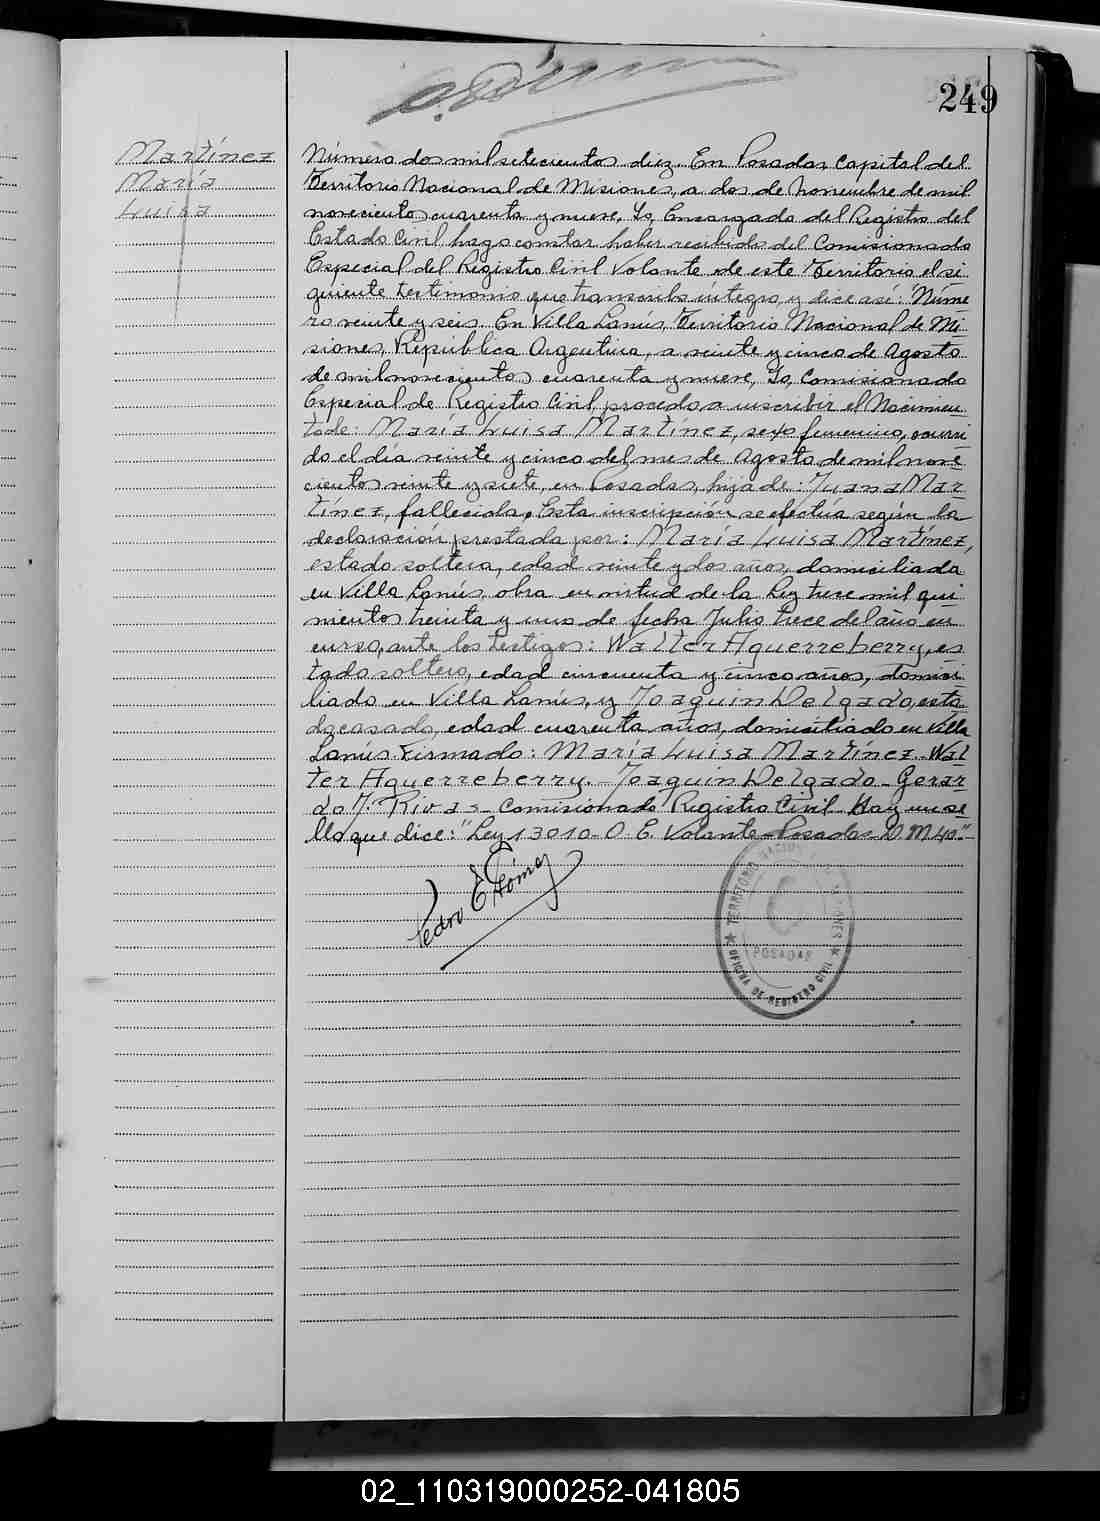 249
Martínez
María
Luisa
Número dos mil setecientos diez. En Posadas, Capital del
Territorio Nacional de Misiones, a dos de Noviembre de mil
novecientos cuarenta y nueve, Yo, Encargado del Registro del
Estado Civil, hago constar haber recibido del Comisionado
Especial del Registro Civil Volante de este Territorio el si
guiente testimonio que transcribo íntegro y dice así: "Núme
ro veinte y seis. En Villa Lanús, Territorio Nacional de Mi
siones, República Argentina, a veinte y cinco de Agosto
de mil novecientos cuarenta y nueve, Yo, Comisionado
Especial de Registro Civil, procedo a inscribir el Nacimien
to de: María Luisa Martínez, sexo femenino, ocurri
do el día veinte y cinco del mes de Agosto de mil nove
cientos veinte y siete, en Posadas, hija de: Juana Mar
tínez, fallecida. Esta inscripción se efectúa según la
declaración prestada por: María Luisa Martínez,
estado soltera, edad veinte y dos años, domiciliada
en Villa Lanús, obra en virtud de la Ley trece mil qui
nientos treinta y uno de fecha Julio trece del año en
curso, ante los testigos: Walter Aguerreberry, es
tado soltero, edad cincuenta y cinco años, domici
liado en Villa Lanús, y Joaquin Delgado, esta
do casado, edad cuarenta años, domiciliado en Villa
Lanús. Firmado: María Luisa Martínez. Wal
ter Aguerreberry. Joaquin Delgado. Gerar
do J. Rivas. Comisionado Registro Civil. Hay un se
llo que dice: "Ley 13010-O. E. Volante-Posadas-D. M 40."
Pedro E Gómez
TERRITORIO NACIONAL DE MISIONES
POSADAS
OFICINA DE REGISTRO CIVIL
02_110319000252-041805